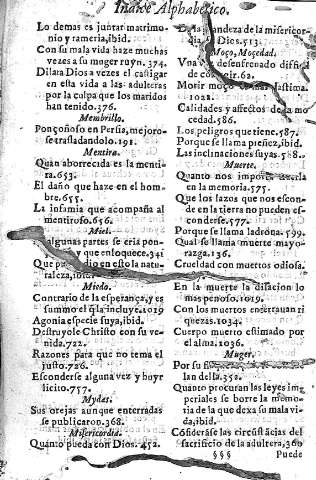 Indice Alphabetico.
Lo demas es juntar matrimo-
nio y rameria, ibid.
Con su mala vida haze muchas
vezes a su muger ruyn. 374.
Dilata Dios a vezes el castigar
en esta vida a las adulteras
por la culpa que los maridos
han tenido. 376.
Membrillo.
Ponçoñoso en Persia, mejoro-
se trasladandolo. 191.
Mentira.
Quan aborrecida es la menti-
ra. 653.
El daño que haze en el hom-
bre. 655.
La infamia que acompaña al
mentiroso. 656.
Miel.
algunas partes se cria pon-
que enloquece. 341
Que en esto la natu-
raleza,
Miedo.
Contrario de la esperança, y es
summo el q̃ la incluye. 1019
Agonia especie suya, ibid.
Destruyole Christo con su ve-
nida. 722.
Razones para que no tema el
justo. 726.
Esconderse alguna vez y huyr
licito. 757.
Mydas.
Sus orejas aunque enterradas
se publicaron. 368.
Misericordia.
Quanto pueda con Dios. 452.
grandeza de la misericor-
Dios. 513.
Moço, Moçedad.
Vna desenfrenado dificil
62.
Morir moço lastima.
1021.
Calidades y affectos de la mo-
cedad. 586.
Los peligros que tiene. 587.
Porque se llama pñez, ibid.
Las inclinaciones suyas.
Muerte.
Quanto nos importa
en la memoria. 575.
Que los lazos que nos escon-
de en la tierra no pueden es-
conderse. 577.
Porque se llama ladrona. 599.
Qual se llama muerte mayo-
razga. 136.
Crueldad con muertos odiosa.
En la muerte la dilacion lo
mas penoso. 1019.
Con los muertos enterrauan ri
quezas. 1034.
Cuerpo muerto estimado por
el alma. 1036.
Muger.
Por su
lan della. 352.
Quanto procuran las leyes im-
periales se borre la memo-
ria de la que dexa su mala vi-
da, ibid.
Cõsiderãse las circũstãcias del
sacrificio de la adultera, 360
§§§ Puede